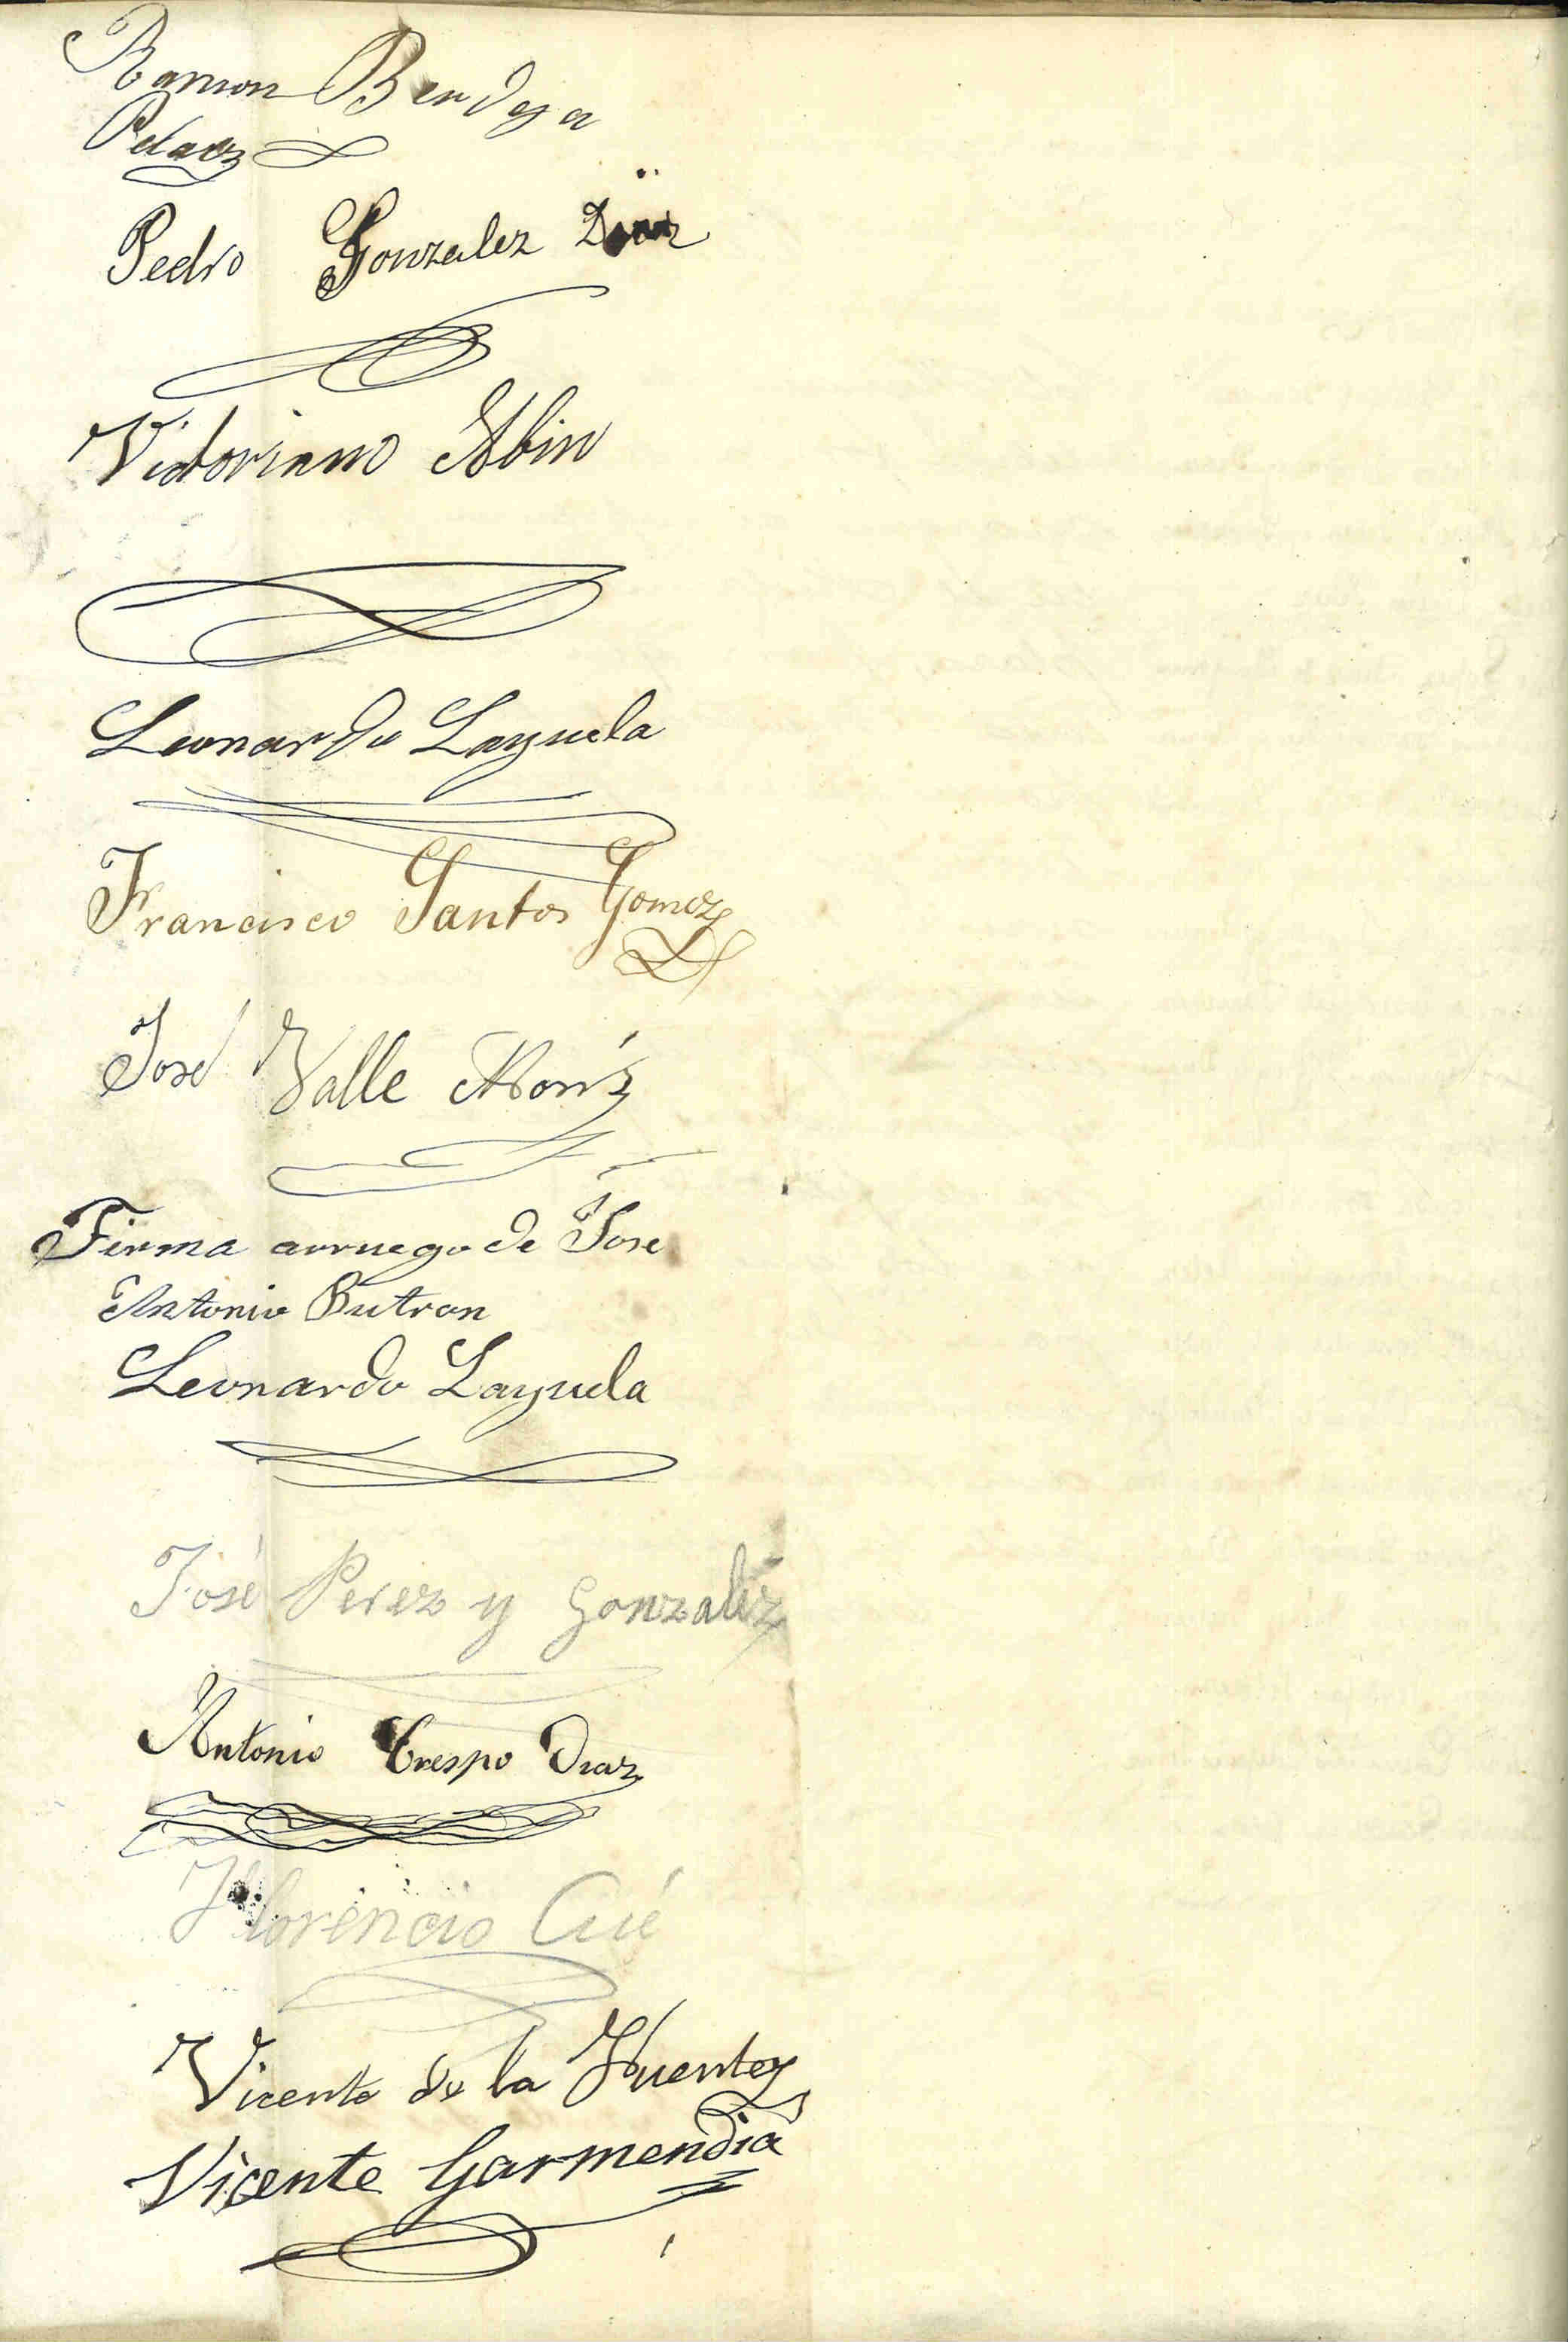 Ramon Berdeja
Pelaez
Pedro Gonzalez Diaz
Victoriano Abin
Leonardo Layuela
Francisco Santos Gomez
José Valle Noriz
Firma arruego de Jose
Antonio Butron
Leonardo Layuela
José Perez y Gonzalez
Antonio Crespo Diaz
Florencio Cué
Vicente de la Fuente
Vicente Garmendia